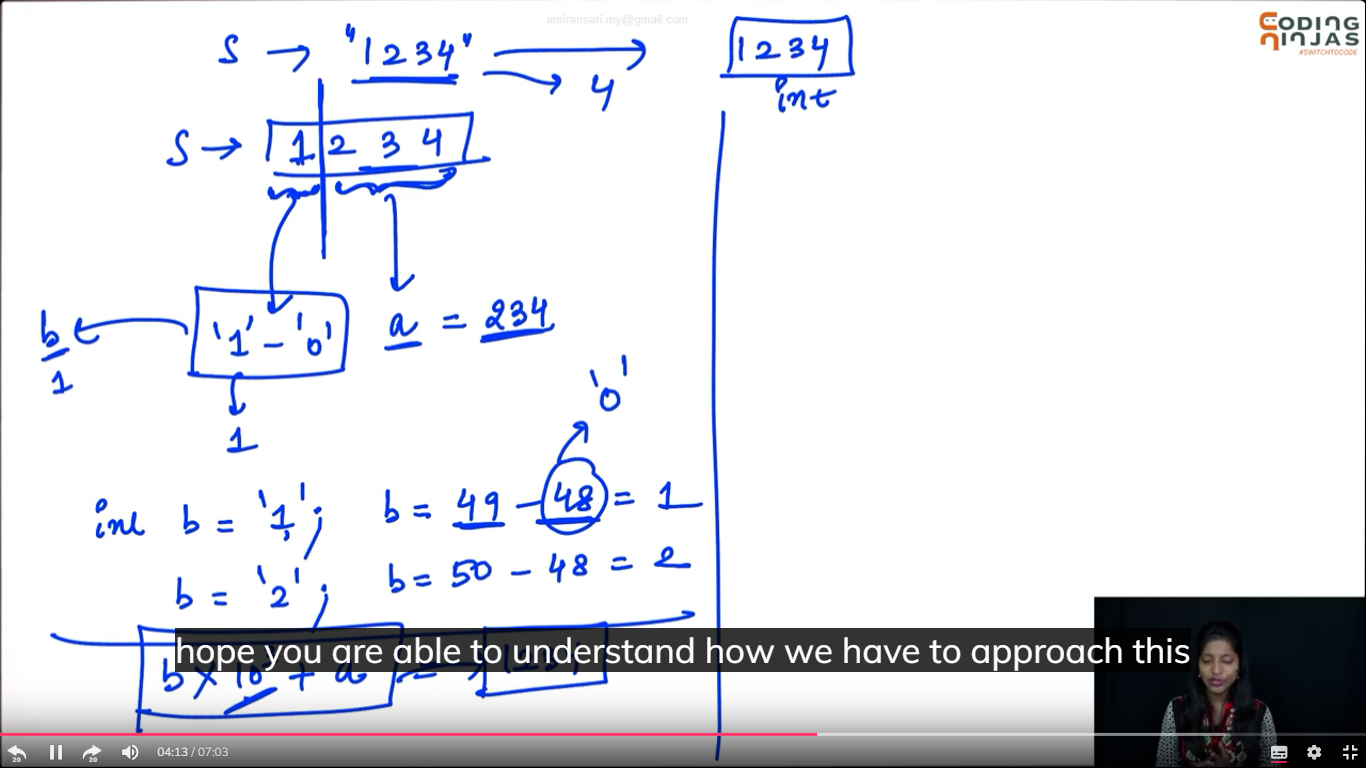 amiransari my@gmail.com
CODING
NINJAS
#SWITCHTOCODE
S → "1234" → 1234
→ 4
int
S → 1 2 3 4
'1' - '0'
a = 234
b
1
1
'0'
int b = '1'; b = 49 - 48 = 1
b = '2'; b = 50 - 48 = 2
b × 10 + a
hope you are able to understand how we have to approach this
20
20
04:13 / 07:03